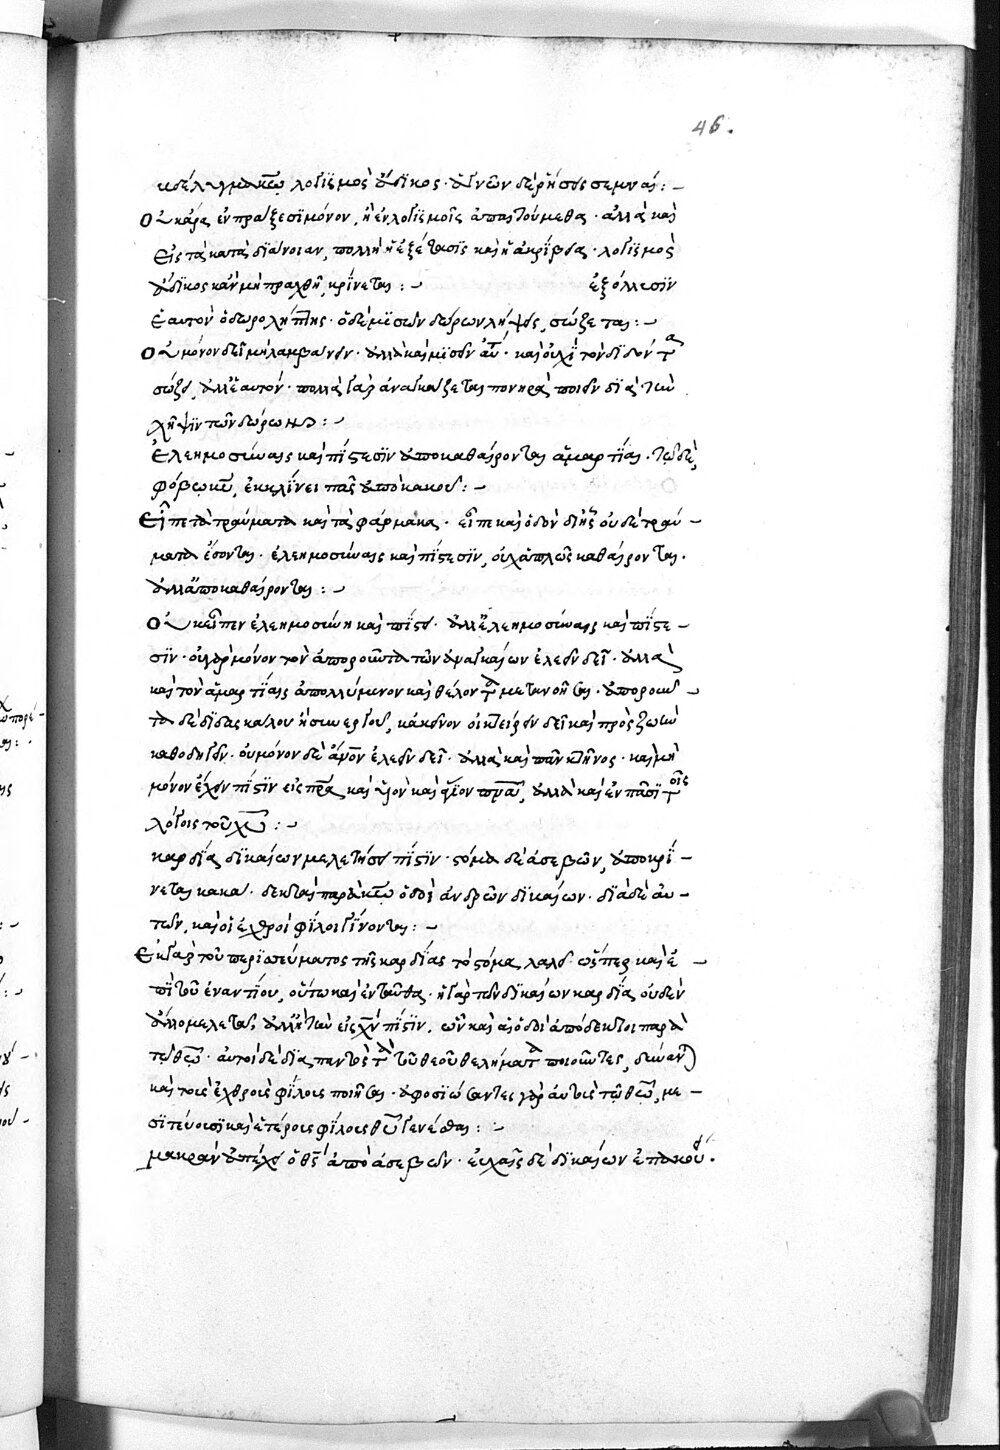 46.
βδέλυγμα κ͞ω λογϊσμὸς ἄδϊκος · ἁγνῶν δὲ ῥήσεις σεμναί : ~
Οὐκ ἄρα ἐν πράξεσϊ μόνον, ἢ ἐν λογϊσμοῖς ἀπαιτούμεθα · ἀλλὰ καὶ
εἰς τὰ κατὰ δϊάνοιαν, πολλὴ ἡ ἐξέτασϊς καὶ ἡ ἀκρίβεια · λογϊσμὸς
ἄδϊκος κἂν μὴ πραχθῆ, κρίνεται : ~ ἐξόλλεσϊν
ἑαυτὸν ὁ δωρολήπτης · ὁ δὲ μϊσῶν δώρων λήψεις, σώζεται : ~
Οὐ μόνον δεῖ μὴ λαμβάνειν · ἀλλὰ καὶ μϊσεῖν αὐτά · καὶ οὐχὶ τὸν δϊδόντα
σώζει, ἀλλ' ἑαυτόν · πολλὰ γὰρ ἀναγκάζεται πονηρὰ ποιεῖν δϊὰ τὴν
λῆψϊν τῶν δώρων : ~
Ἐλεημοσύναις καὶ πίστεσϊν ἀποκαθαίρονται ἁμαρτίαι · τῶ δὲ
φόβω κ͞υ, ἐκκλίνει πᾶς ἀπὸ κακοῦ : ~
Εἶπε τὰ τραύματα καὶ τὰ φάρμακα · εἶπε καὶ ὁδὸν δι' ἧς οὐδὲ τραύ-
ματα ἔσονται · ἐλεημοσύναις καὶ πίστεσϊν, οὐχ ἁπλῶς καθαίρονται ·
ἀλλ' ἀποκαθαίρονται : ~
Οὐκ εἶπεν ἐλεημοσύνη καὶ πίστει · ἀλλ' ἐλεημοσύναις καὶ πίστε-
σϊν · οὐ γὰρ μόνον τὸν ἀποροῦντα τῶν ἀναγκαίων ἐλεεῖν δεῖ · ἀλλὰ
καὶ τὸν ἁμαρτίαις ἀπολλύμενον καὶ θέλοντα μετανοῆσαι · ἀποροῦν-
τα δὲ δϊδασκάλου ἢ συνεργοῦ, κἀκεῖνον οἰκτείρειν δεῖ καὶ πρὸς ζωὴν
καθοδηγεῖν · οὐ μόνον δὲ ἄν͞ον ἐλεεῖν δεῖ · ἀλλὰ καὶ πᾶν κτῆνος · καὶ μὴ
μόνον ἔχειν πίστϊν εἰς π͞ρα καὶ υἱὸν καὶ ἅγϊον πν͞α, ἀλλὰ καὶ ἐν πᾶσϊ τοῖς
λόγοις τοῦ χ͞υ : ~
καρδίαι δϊκαίων μελετήσει πίστϊν · στόμα δὲ ἀσεβῶν, ἀποκρί-
νεται κακά · δεκταὶ παρὰ κ͞ω ὁδοὶ ἀνδρῶν δϊκαίων · δϊὰ δὲ αὐ-
τῶν, καὶ οἱ ἐχθροὶ φίλοι γίνονται : ~
Ἐκ γὰρ τοῦ περϊσσεύματος τῆς καρδίας τὸ στόμα λαλεῖ · ὥσπερ καὶ ἐ-
πὶ τοῦ ἐναντίου, οὕτω καὶ ἐνταῦθα · ἡ γὰρ τῶν δϊκαίων καρδία οὐδὲν
ἄλλο μελετᾷ, ἀλλ' ἢ τὴν εἰς χ͞ν πίστϊν, ὧν καὶ αἱ ὁδοὶ ἀπόδεκτοι παρὰ
τῷ θ͞ω · αὐτοὶ δὲ δϊαπαντὸς τὰ τοῦ θεοῦ θελήματα ποιοῦντες, δύνανται
καὶ τοὺς ἐχθροὺς φίλους ποιῆσαι · ἀφοσϊώσαντες γὰρ αὐτοὺς τῷ θ͞ω, με-
σϊτεύουσϊ καὶ ἑτέροις φίλοις θ͞υ γενέσθαι : ~
μακρὰν ἀπέχει ὁ θ͞ς ἀπὸ ἀσεβῶν · εὐχαῖς δὲ δϊκαίων ἐπακούει .